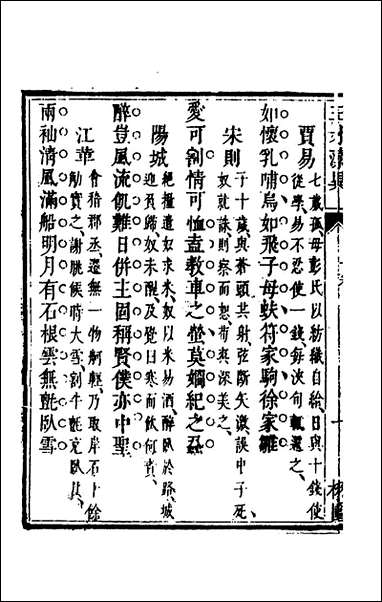 賈易
七歲孤母彭氏以紡織自給日與十錢使
從學易不忍使一錢每浹旬輒還之
如懷乳哺烏如飛子母蚨符家駒徐家雛
朱則
子十歲與蒼頭共射弦斷矢激誤中子死
奴就誅則察而恕
愛可割情可恤盍教車之螫莫嫺紀之
陽城
絕糧遣奴求米奴以米易酒醉臥於路城
迎負歸奴未醒及覺曰寒而飲何責
醉豈風流飢難日併主固稱賢僕亦中聖
江革
會稽郡丞還無一物舸輕乃取岸石十餘
勛實之謝朓候時大雪割半氈充臥具
兩袖清風滿船明月有石根雲無氈臥雪